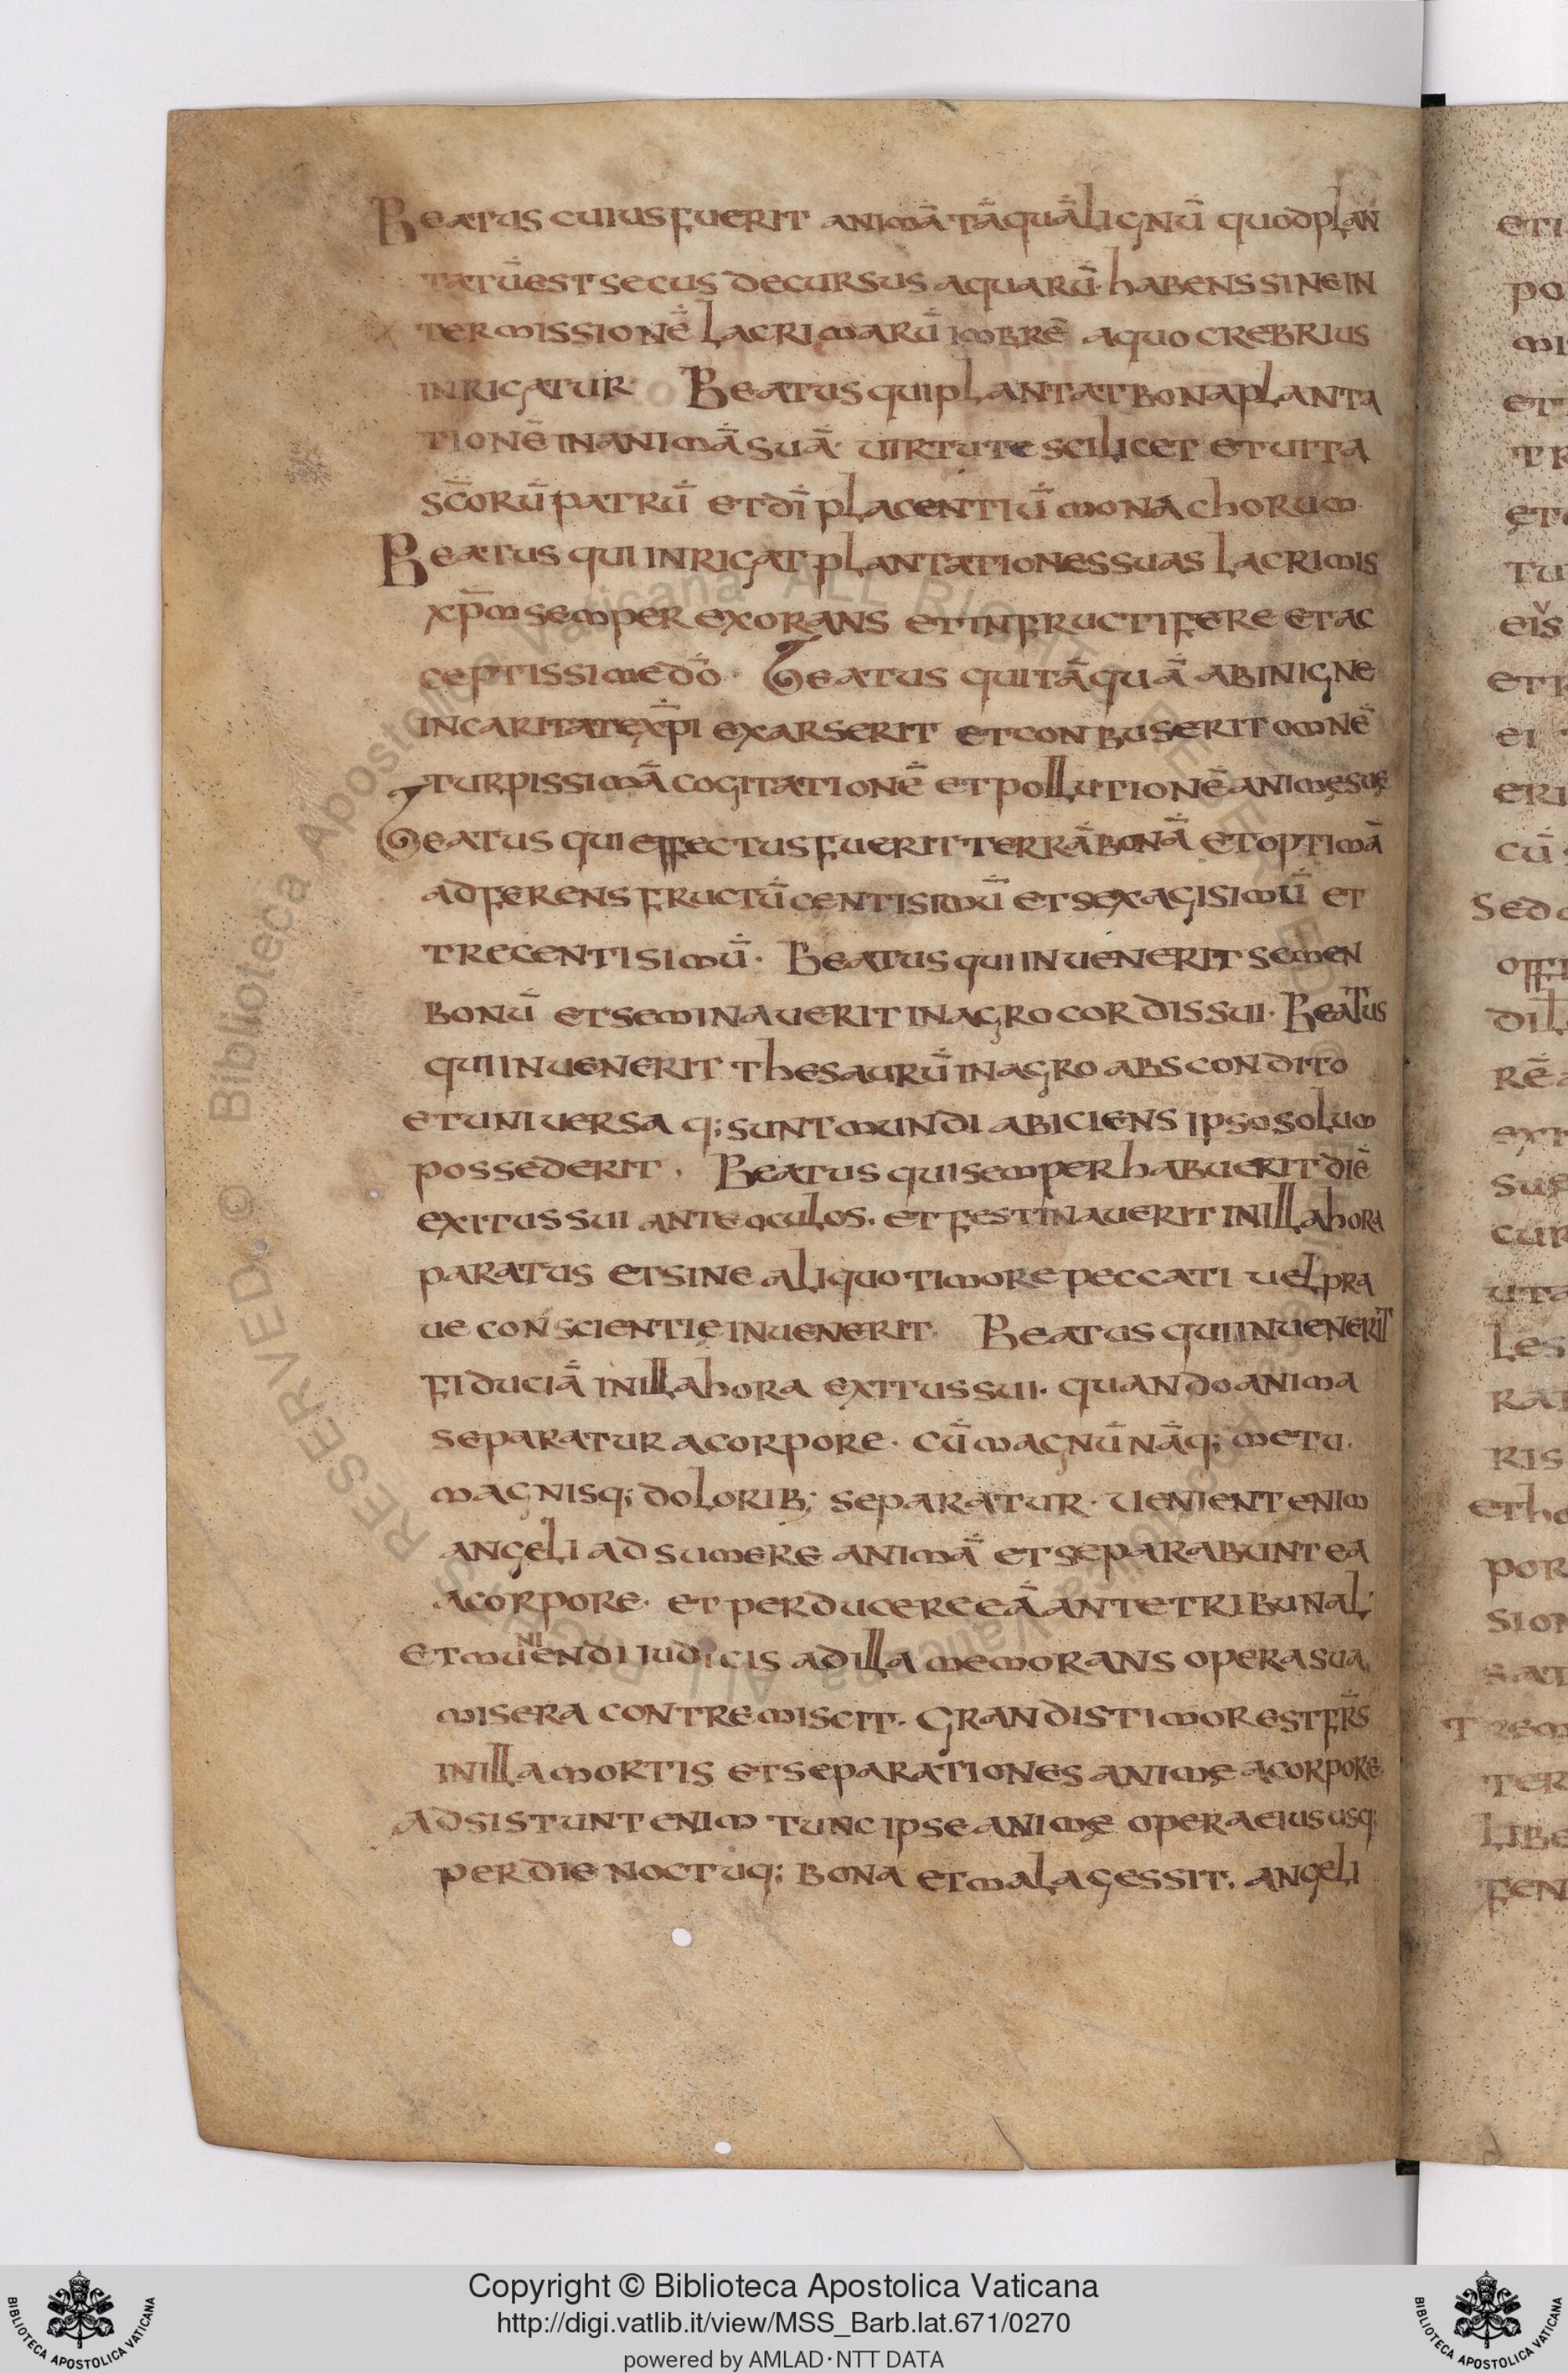 Beatus cuius fuerit animā tāquā lignū quod plan
tatū est secus decursus aquarū habens sine in
termissionē lacrimarū imbrē a quo crebrius
inrigatur· Beatus qui plantat bona planta
tionē in animā suā· uirtute scilicet et uita
sc̄orū patrū et dī placentiū monachorum·
Beatus qui inrigat plantationes suas lacrimis
xp̄m semper exorans et infructifere et ac
ceptissime dō· Beatus qui tāquā ab inigne
in caritate xp̄i exarserit et conbuserit omnē
turpissimā cogitationē et pollutionē animę suę
Beatus qui effectus fuerit terrā bonā et optimā
adferens fructū centisimū et sexagisimū et
trecentisimū· Beatus qui inuenerit semen
bonū et seminauerit in agro cordis sui· Beatus
qui inuenerit thesaurū in agro abscondito
et uniuersa q; sunt mundi abiciens ipso solum
possederit· Beatus qui semper habuerit diē
exitus sui ante oculos· et festinauerit in illa hora
paratus et sine aliquo timore peccati uel pra
ue conscientię inuenerit· Beatus qui inuenerit
fiduciā in illa hora exitus sui· quando anima
separatur a corpore· cū magnū nāq; metu·
magnisq; dolorib; separatur· Uenient enim
angeli adsumere animā et separabunt ea
a corpore· et perducere eā ante tribunal·
et mu\ni/endi iudicis ad illa memorans opera sua
misera contremiscit· Grandis timor est fr̄s
in illa mortis et separationes animę a corpore·
Adsistunt enim tunc ipse animę opera eius usq;
per die noctuq; bona et mala gessit· angeli
eti
po
mi
et
tr
et
tu
eis̄
et
ei
eri
cū
Sed
offi
dil
rē
ext
suę
cur
uta
les
ra
ris
et ho
por
sion
sat
Trem
ter
Libe
fen
© Biblioteca Apostolica Vaticana ALL RIGHTS RESERVED
Copyright © Biblioteca Apostolica Vaticana
http://digi.vatlib.it/view/MSS_Barb.lat.671/0270
powered by AMLAD·NTT DATA
BIBLIOTECA APOSTOLICA VATICANA
BIBLIOTECA APOSTOLICA VATICANA